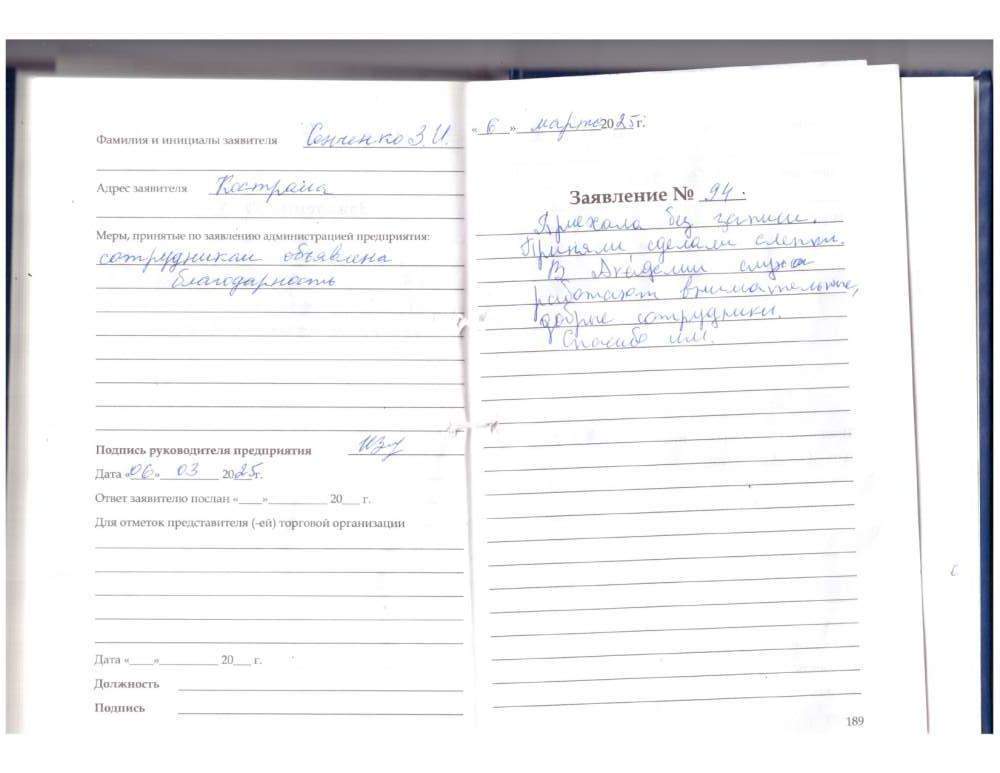 Фамилия и инициалы заявителя Сенченко З.И.
Адрес заявителя Кострома
Меры, принятые по заявлению администрацией предприятия:
сотрудникам объявлена
благодарность
Подпись руководителя предприятия
Дата «06» 03 2025г.
Ответ заявителю послан «____»__________ 20___ г.
Для отметок представителя (-ей) торговой организации
Дата «____»__________ 20___ г.
Должность
Подпись
«6» марта 2025г.
Заявление № 94.
Приехала без записи.
Приняли сделали слепки.
В Академии слуха
работают внимательные,
добрые сотрудники.
Спасибо им.
189